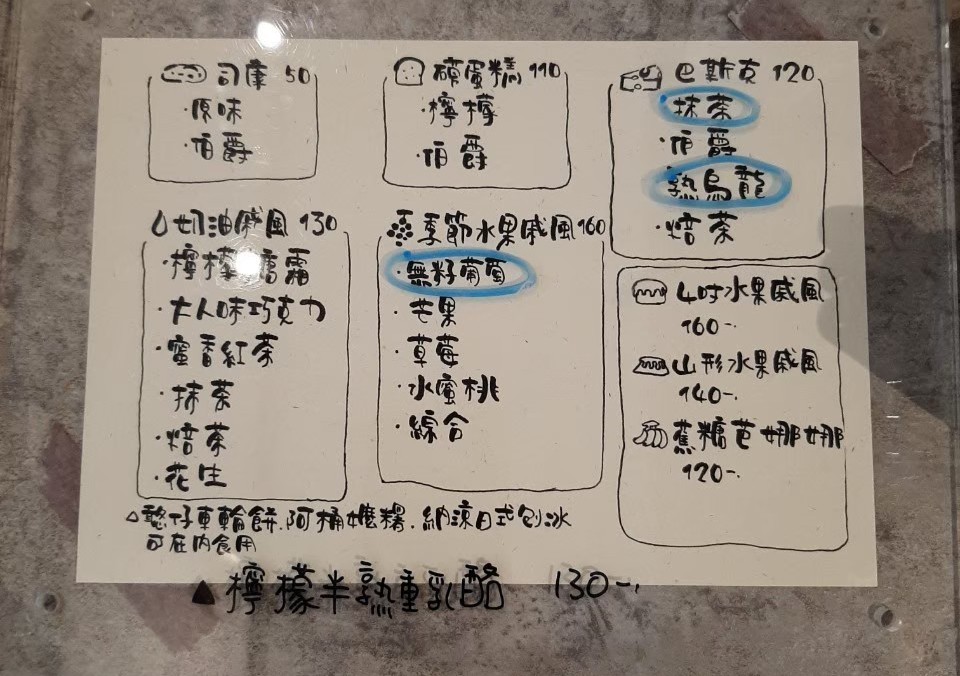 司康 50
·原味
·伯爵
磅蛋糕 110
·檸檬
·伯爵
巴斯克 120
·抹茶
·伯爵
·熟烏龍
·焙茶
奶油戚風 130
·檸檬糖霜
·大人味巧克力
·蜜香紅茶
·抹茶
·焙茶
·花生
季節水果戚風 160
·無籽葡萄
·芒果
·草莓
·水蜜桃
·綜合
4吋水果戚風
160-.
山形水果戚風
140-.
蕉糖芭娜娜
120-.
△憨仔車輪餅.阿桶嬤糬.納涼日式刨冰
可在內食用
▲檸檬半熟重乳酪 130-.